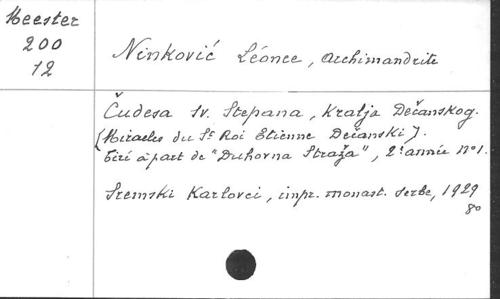 Meester
200
12
Ninković Léonce, Archimandrite
Čudesa Sv. Stepana, Kralja Dečanskog.
(Miracles du St Roi Etienne Dečanski).
tiré à part de "Duhovna Straža", 2e année no 1.
Sremski Karlovci, impr. monast. serbe, 1929
8o